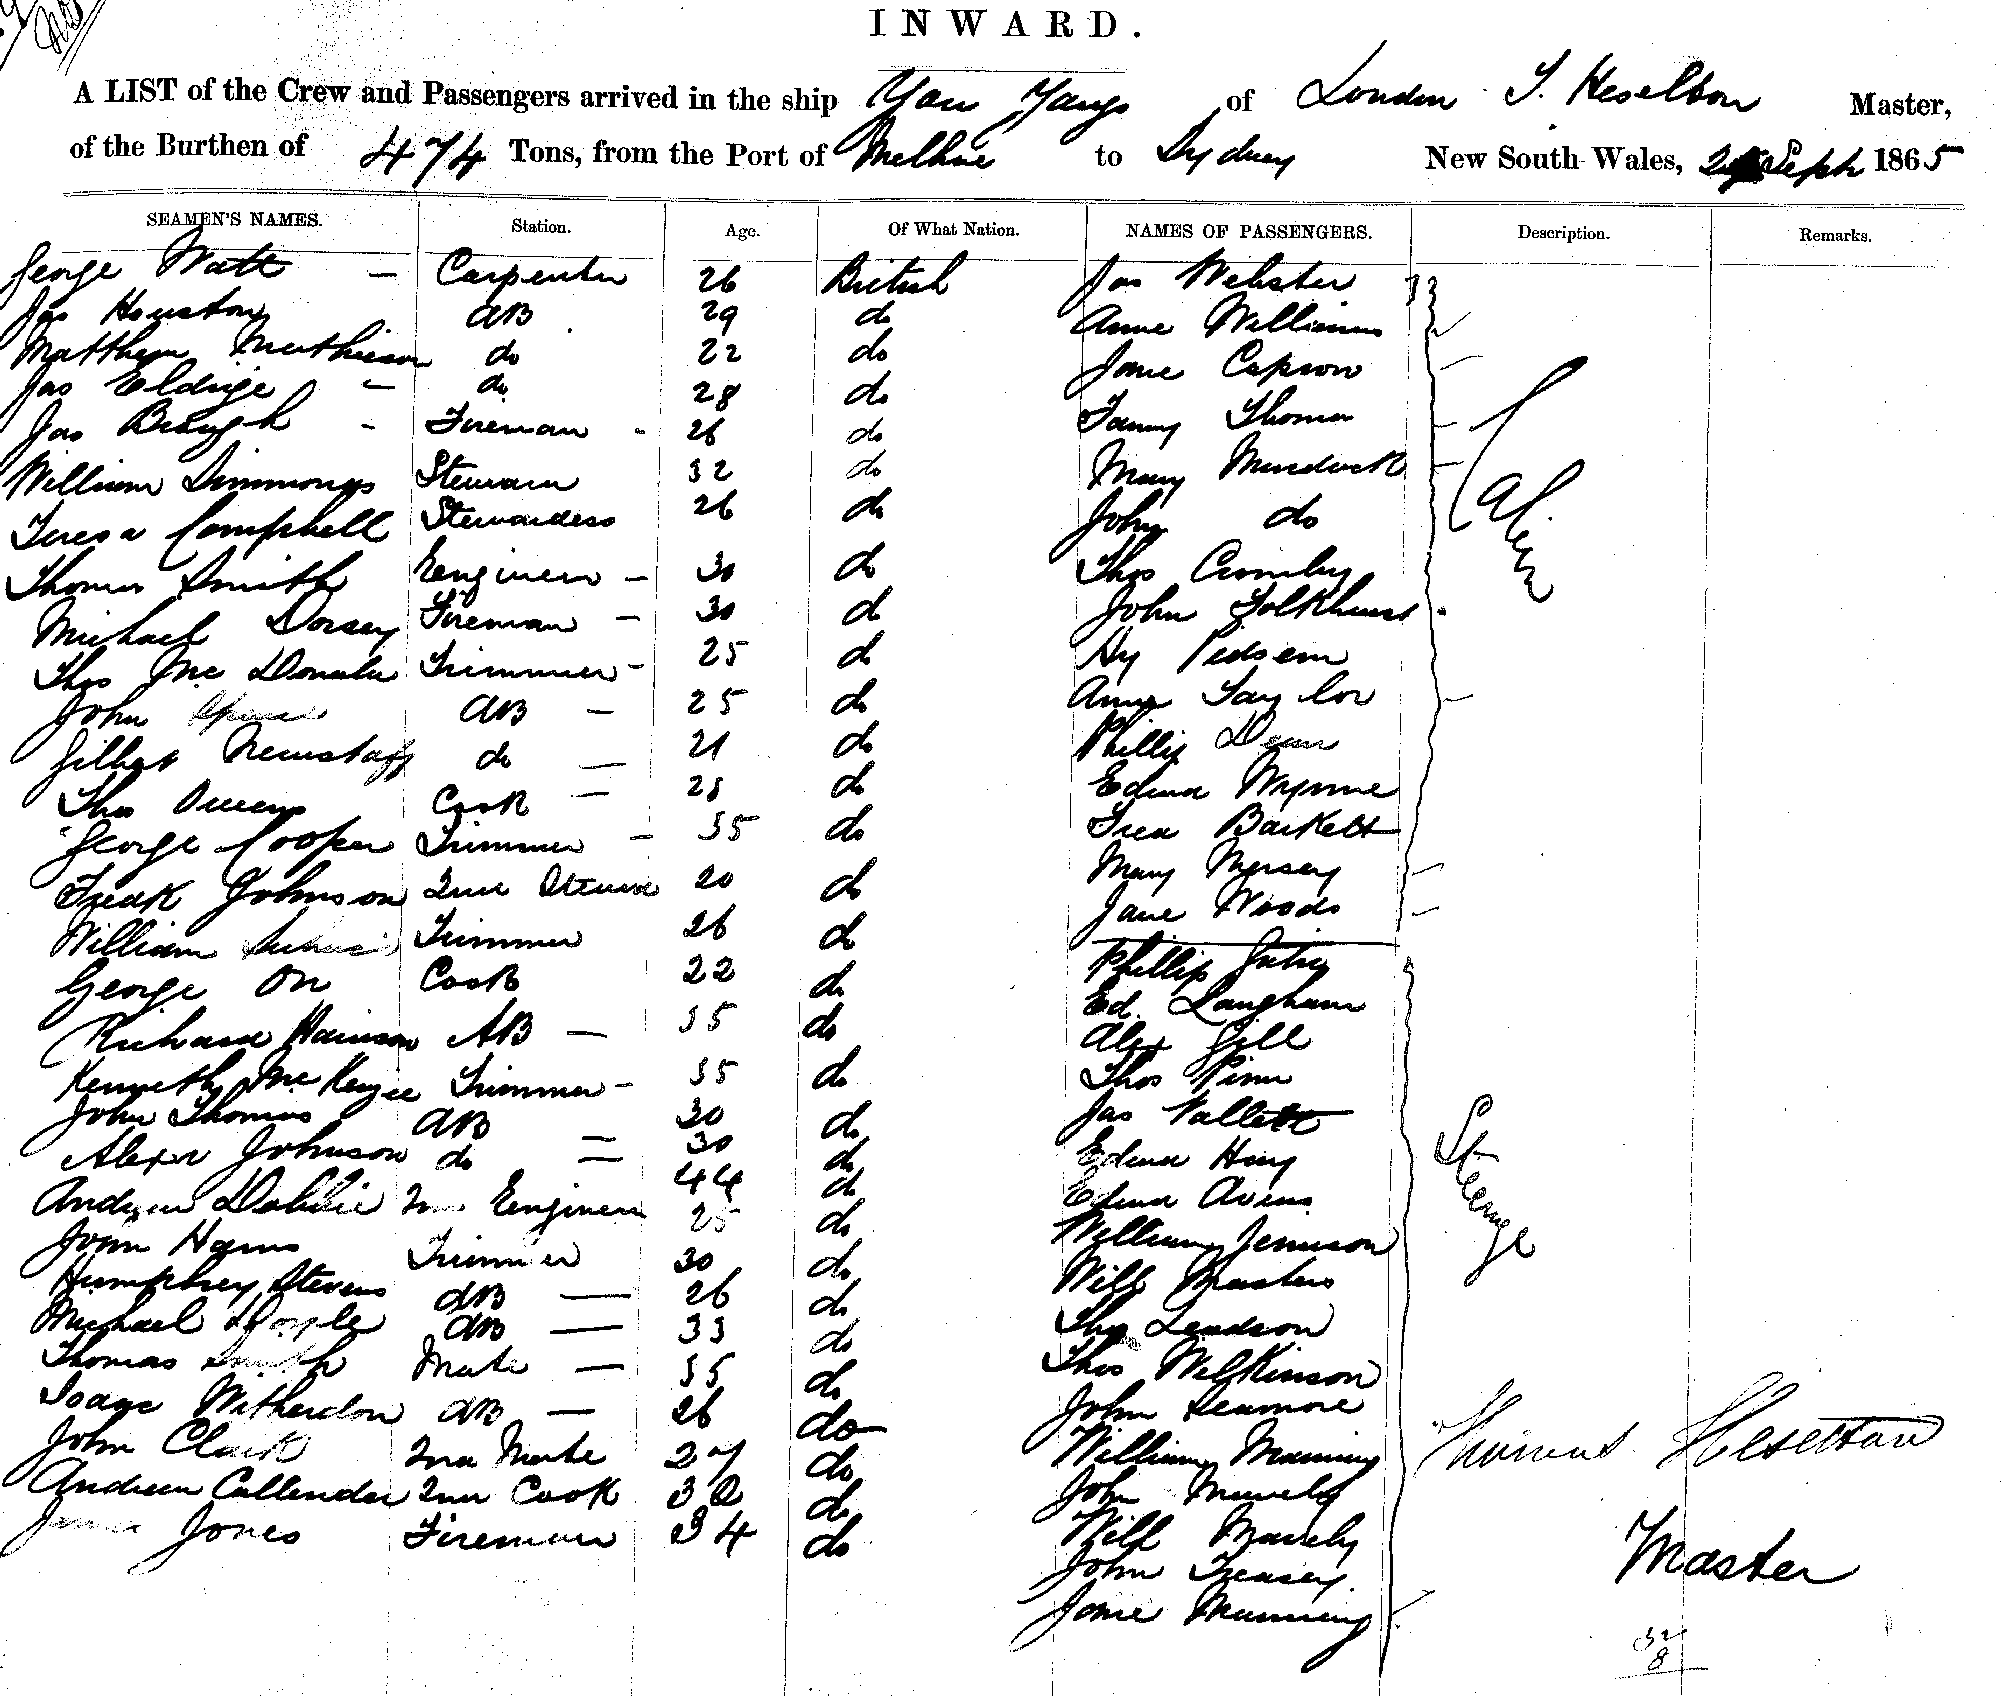 INWARD.
A LIST of the Crew and Passengers arrived in the ship You Yangs of London T. Heselton Master,
of the Burthen of 474 Tons, from the Port of Melbne to Sydney New South Wales, Sept 1865
SEAMEN'S NAMES. Station. Age. Of What Nation. NAMES OF PASSENGERS. Description. Remarks.
George Watt - Carpenter 26 British Jas Webster
Jas Houston AB 29 do Anne Williams
Matthew Mathieson do 22 do Jane Capson
Jas Eldrige - do 28 do Fanny Thomas
Jas Brough - Fireman - 26 do Mary Murdock
William Simmongs Steward 32 do John do
Teresa Campbell Stewardess 26 do Thos Cromby Cabin
Thomas Smith Engineer - 30 do John Folkhurst
Michael Dorsey Fireman - 30 do Hy
Thos McDonald Trimmer - 25 do Anne Taylor
John AB - 25 do Phillip Dean
Gilbert Newstaff do - 21 do Edwd Wynne
Thos Owens Cook - 28 do Fred Barkett
George Cooper Trimmer - 35 do Mary Mersey
Fredk Johnson 2nd Steward 20 do Jane Woods
William Trimmer 26 do Phillip
George Orr Cook 22 do Ed. Langham
Richard Harrison AB - 35 do Alex Gill
Kenneth McKenzie Trimmer - 35 do Thos Pinn
John Thomas AB - 30 do Jas Vallett
Alexr Johnson do - 30 do Edwd King
Andrew Dobbie 2nd Engineer 44 do Edwd Avens Steerage
John Harris Trimmer 25 do William Jemison
Humphrey Stevens AB - 30 do Will Masters
Michael Doyle AB - 26 do Thos
Thomas Smith Mate - 33 do Thos Wilkinson
Isaac Witherdon AB - 35 do John Seamore
John Clark 2nd Mate 26 do William Manning Thomas Heselton
Andrew Callender 2nd Cook 27 do John
James Jones Fireman 32 do Will
34 do John Treasey Master
Jane Manning
32
8